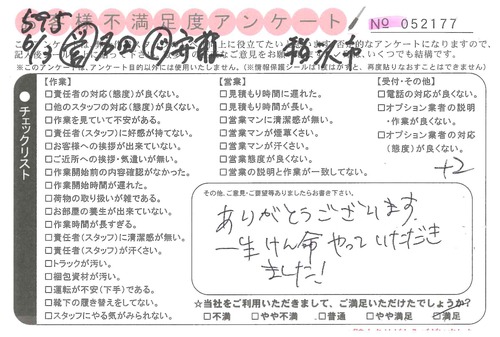 595
お客様不満足度アンケート
No 052177
6/3
※このアンケートは、アンケート目的以外には使用いたしません。
チェックリスト
【作業】
□責任者の対応(態度)が良くない。
□他のスタッフの対応(態度)が良くない。
□作業を見ていて不安がある。
□責任者(スタッフ)に好感が持てない。
□お客様への挨拶が出来ていない。
□ご近所への挨拶・気遣いが無い。
□作業開始前の内容確認がなかった。
□作業開始時間が遅れた。
□荷物の取り扱いが雑である。
□お部屋の養生が出来ていない。
□作業時間が長すぎる。
□責任者(スタッフ)に清潔感が無い。
□責任者(スタッフ)が汗くさい。
□トラックが汚い。
□梱包資材が汚い。
□運転が不安(下手)である。
□靴下の履き替えをしてない。
□スタッフにやる気がみられない。
【営業】
□見積もり時間に遅れた。
□見積もり時間が長い。
□営業マンに清潔感が無い。
□営業マンが煙草くさい。
□営業マンが汗くさい。
□営業態度が良くない。
□営業の説明と作業が一致してない。
【受付・その他】
□電話の対応が良くない。
□オプション業者の説明
・作業が良くない。
□オプション業者の対応
(態度)が良くない。
+2
その他、ご意見・ご要望等ありましたらお書き下さい。
ありがとうございます。
一生けん命やっていただき
ました!
☆当社をご利用いただきまして、ご満足いただけたでしょうか?
□不満 □やや不満 □普通 □やや満足 □満足